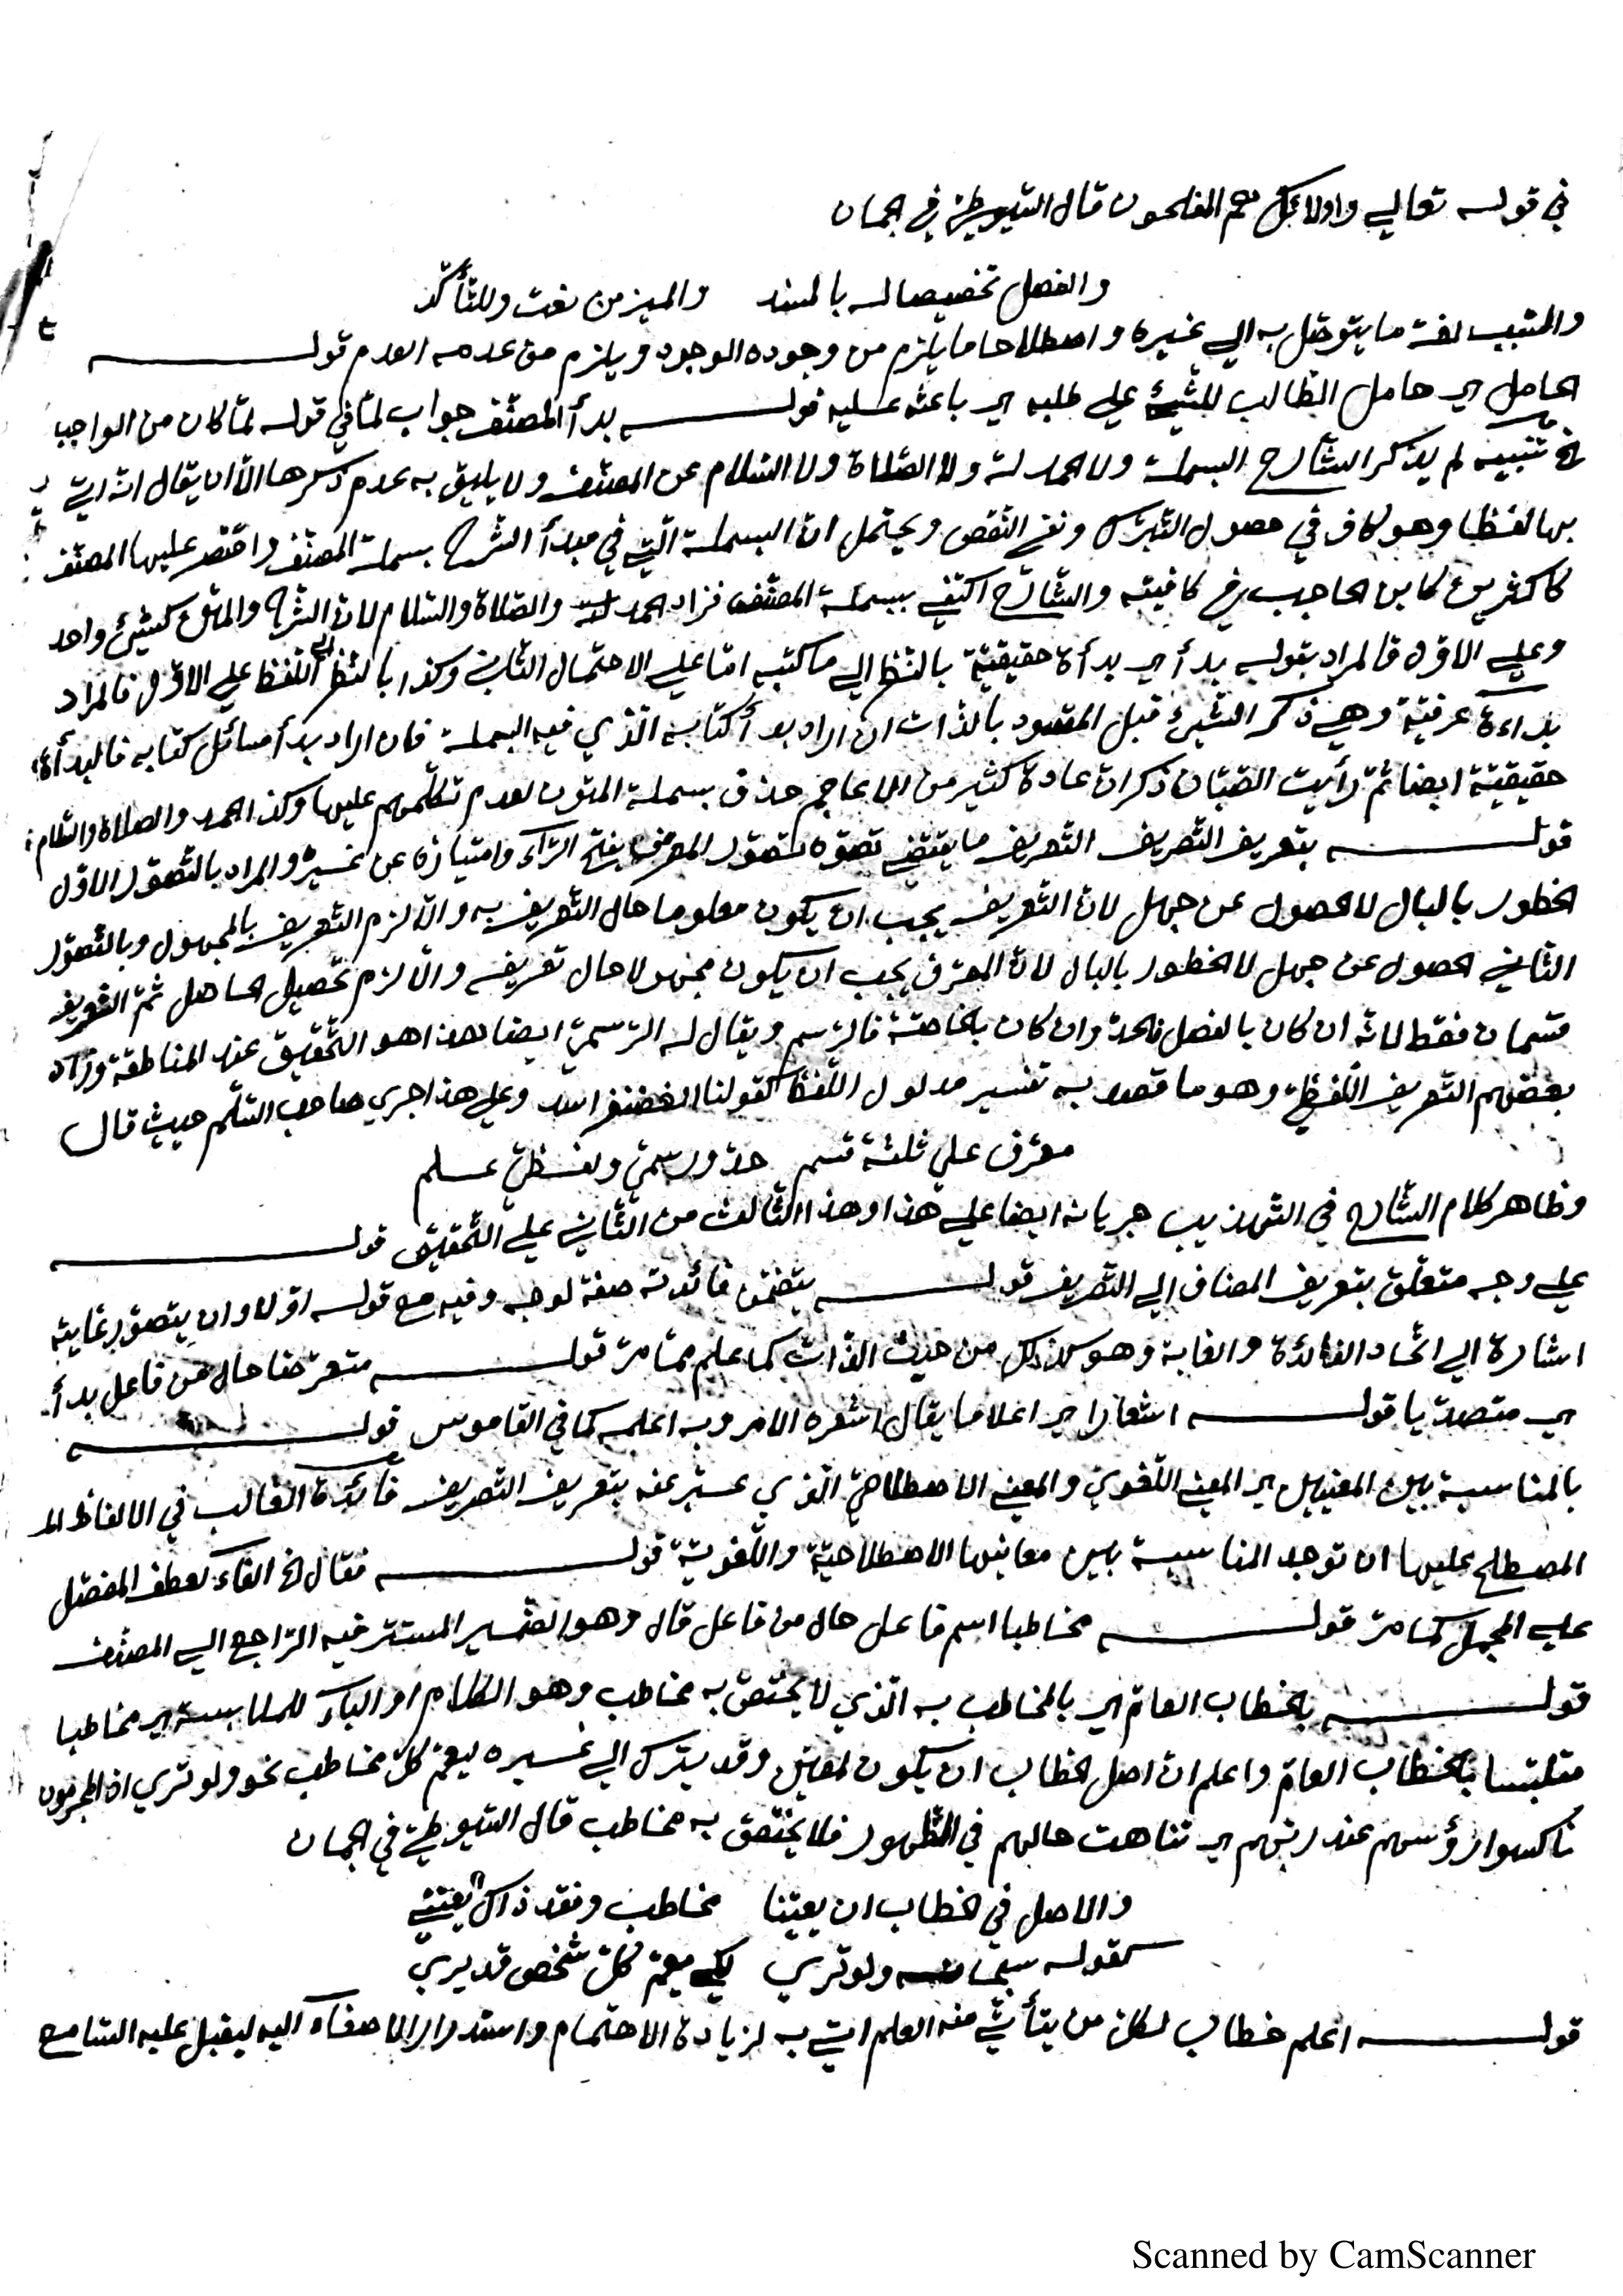 في قوله تعالى واولائك هم المفلحون قال السيوطي في الجمان
والفصل تخصيصا له بالمسند والميز من نعت وللتأكد
والسبب لغة ما يتوصل به الي غيره واصطلاحا ما يلزم من وجوده الوجود ويلزم من عدمه العدم قوله
الحامل اي حامل الطالب للشيئ علي طلبه اي باعثه عليه قوله بدأ المصنف جواب لما في قوله لما كان من الواجب
الخ تنبيه لم يذكر الشارح البسملة ولا الحمدلة ولا الصلاة ولا السلام عن المصنف ولا يليق به عدم ذكرها الا ان يقال انه اتي
بها لفظا وهو كاف في حصول التبرك ونفي النقص ويحتمل ان البسملة التي في مبدأ الشرح بسملة المصنف واقتصر عليها المصنف
كاكثرين كابن الحاجب في كافيته والشارح اكتفي ببسملة المصنف فزاد الحمد لله والصلاة والسلام لان الشرح والمتن كشيئ واحد
وعلي الاول فالمراد بقوله بدأ اي بدأة حقيقية بالنظر الي ما كتبه اما علي الاحتمال الثاني وكذا بالنظر الي اللفظ علي الاول فالمراد
بداءة عرفية وهي ذكر الشيئ قبل المقصود بالذات ان اراد بدأ كتابه الذي فيه البسملة فان اراد بدأ مسائل كتابه فالبدأة
حقيقية ايضا ثم رأيت الصبان ذكر ان عادة كثير من الاعاجم حذف بسملة المتون لعدم تكلمهم عليها وكذا الحمد والصلاة والسلام
قوله بتعريف التصريف التعريف ما يقتضي تصوره تصور المعرف بفتح الراء وامتيازه عن غيره والمراد بالتصور الاول
الخطور بالبال لا الحصول عن جهل لان التعريف يجب ان يكون معلوما حال التعريف به والا لزم التعريف بالمجهول وبالتصور
الثاني الحصول عن جهل لا الخطور بالبال لان المعرف يجب ان يكون مجهولا حال تعريفه والا لزم تحصيل الحاصل ثم التعريف
قسمان فقط لانه ان كان بالفصل فالحد وان كان بالخاصة فالرسم ويقال له الرسمي ايضا هذا هو التحقيق عند المناطقة وزاد
بعضهم التعريف اللفظي وهو ما قصد به تفسير مدلول اللفظ كقولنا الغضنفر اسد وعلي هذا جري صاحب السلم حيث قال
معرف علي ثلثة قسم حد ورسمي ولفظي علم
وظاهر كلام الشارح في التهذيب جريانه ايضا علي هذا وهذا الثالث من الثاني علي التحقيق قوله
علي وجه متعلق بتعريف المضاف الي التصريف قوله يتضمن فائدته صفة لوجه وفيه مع قوله اولا وان يتصور غايته
اشارة الي اتحاد الفائدة والغاية وهو كذلك من حيث الذات كما علم مما مر قوله متعرضا حال من فاعل بدأ
اي متصديا قوله اشعارا اي اعلاما يقال اشعره الامر وبه اعلمه كما في القاموس قوله
بالمناسبة بين المعنيين اي المعني اللغوي والمعني الاصطلاحي الذي عبر عنه بتعريف التصريف فائدة الغالب في الالفاظ الم
المصطلح عليها ان توجد المناسبة بين معانيها الاصطلاحية واللغوية قوله فقال الخ الفاء لعطف المفصل
علي المجمل كما مر قوله مخاطبا اسم فاعل حال من فاعل قال وهو الضمير المستتر فيه الراجع الي المصنف
قوله بالخطاب العام اي بالمخاطب به الذي لا يختص به مخاطب وهو الكلام او الباء للملابسة اي مخاطبا
متلبسا بالخطاب العام واعلم ان اصل الخطاب ان يكون لمعين وقد يترك الي غيره ليعم كل مخاطب نحو ولو تري اذ المجرمون
ناكسوا رؤسهم عند ربهم اي تناهت حالهم في الظهور فلا يختص به مخاطب قال السيوطي في الجمان
والاصل في الخطاب ان يعينا مخاطب وفقد ذاك يعتني
كقوله سبحانه ولو تري لكي يعم كل شخص قد يري
قوله اعلم خطاب لكل من يتأتي منه العلم اتي به لزيادة الاهتمام واستدرار الاصغاء اليه ليقبل عليه السامع
Scanned by CamScanner